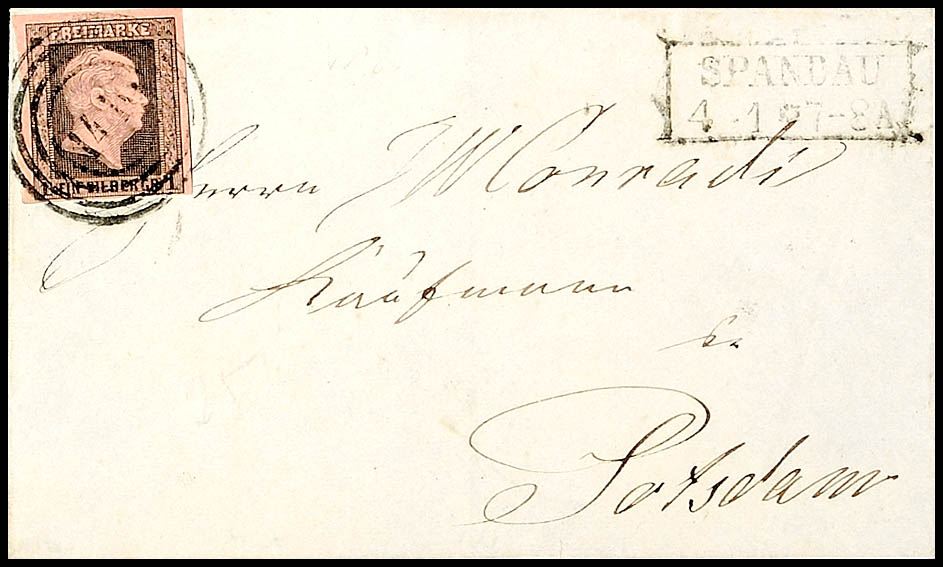 FREIMARKE
1 SILBERGR. 1
SPANDAU
4 . 1 * 7-8A
Herrn J W Conradi
Kaufmann
Potsdam